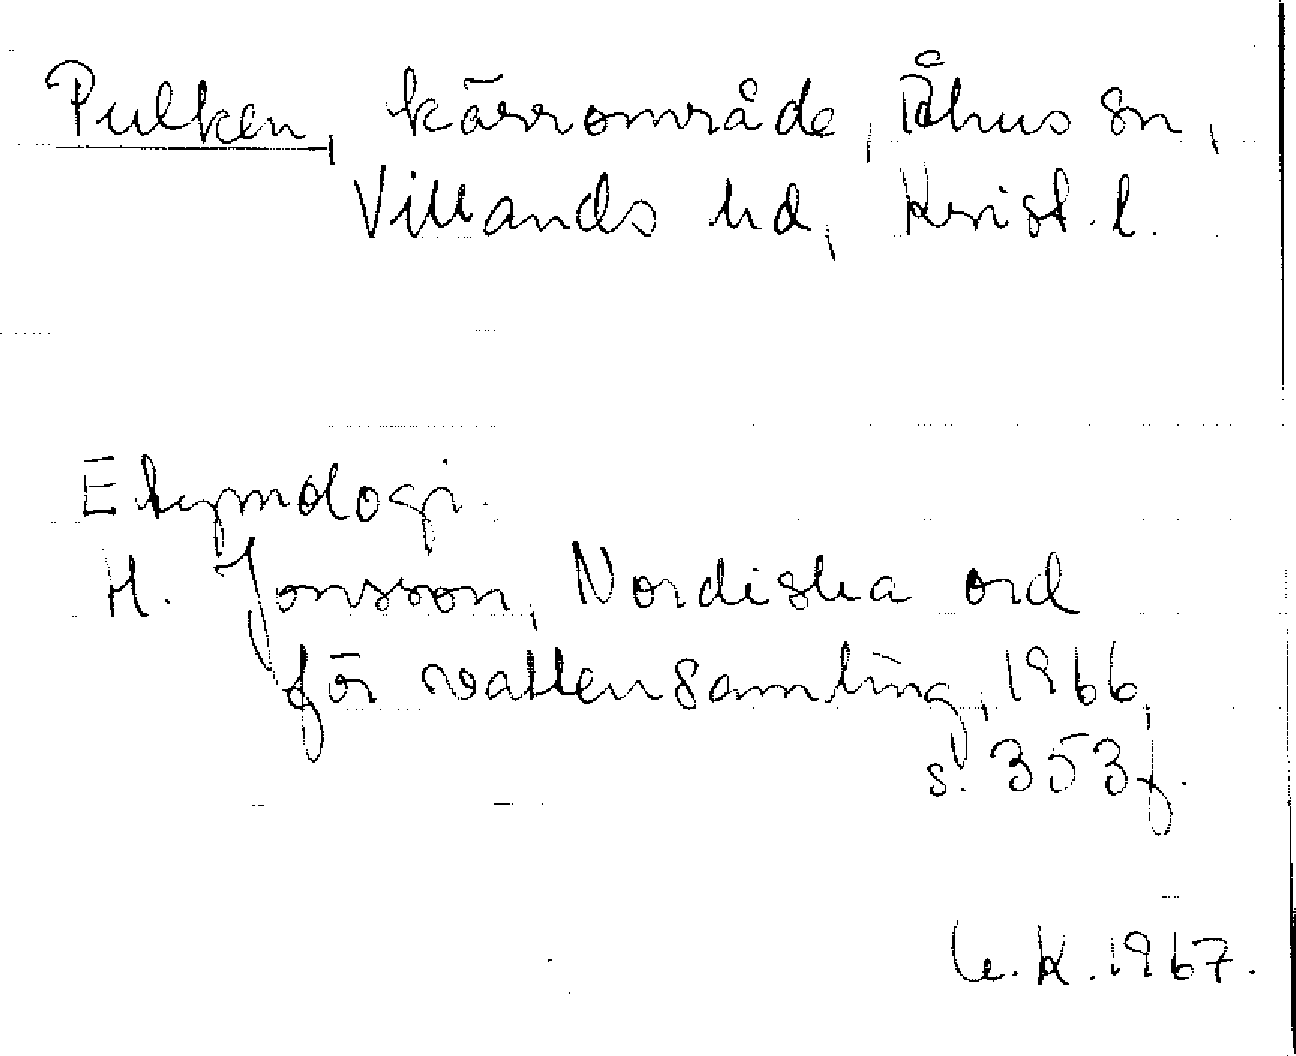 Pulken, kärrområde, Åhus sn,
Villands hd, Krist. l.
Etymologi.
H. Jonsson, Nordiska ord
för vattensamling, 1966,
s. 353 f.
K. 1967.